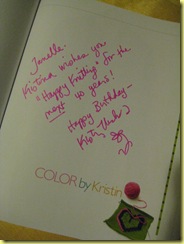 Janelle.
Kristina wishes you
"Happy Knitting" for the
next 40 years!
Happy Birthday-
COLOR by Kristin